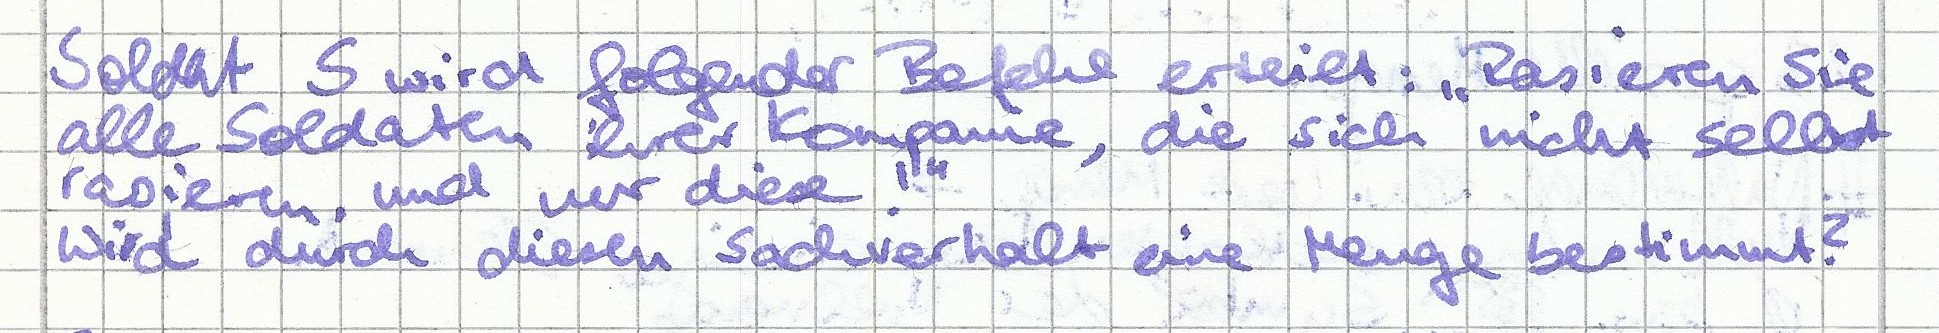 Soldat S wird folgender Befehl erteilt: „Rasieren Sie
alle Soldaten ihrer Kompanie, die sich nicht selbst
rasieren, und nur diese!“
Wird durch diesen Sachverhalt eine Menge bestimmt?